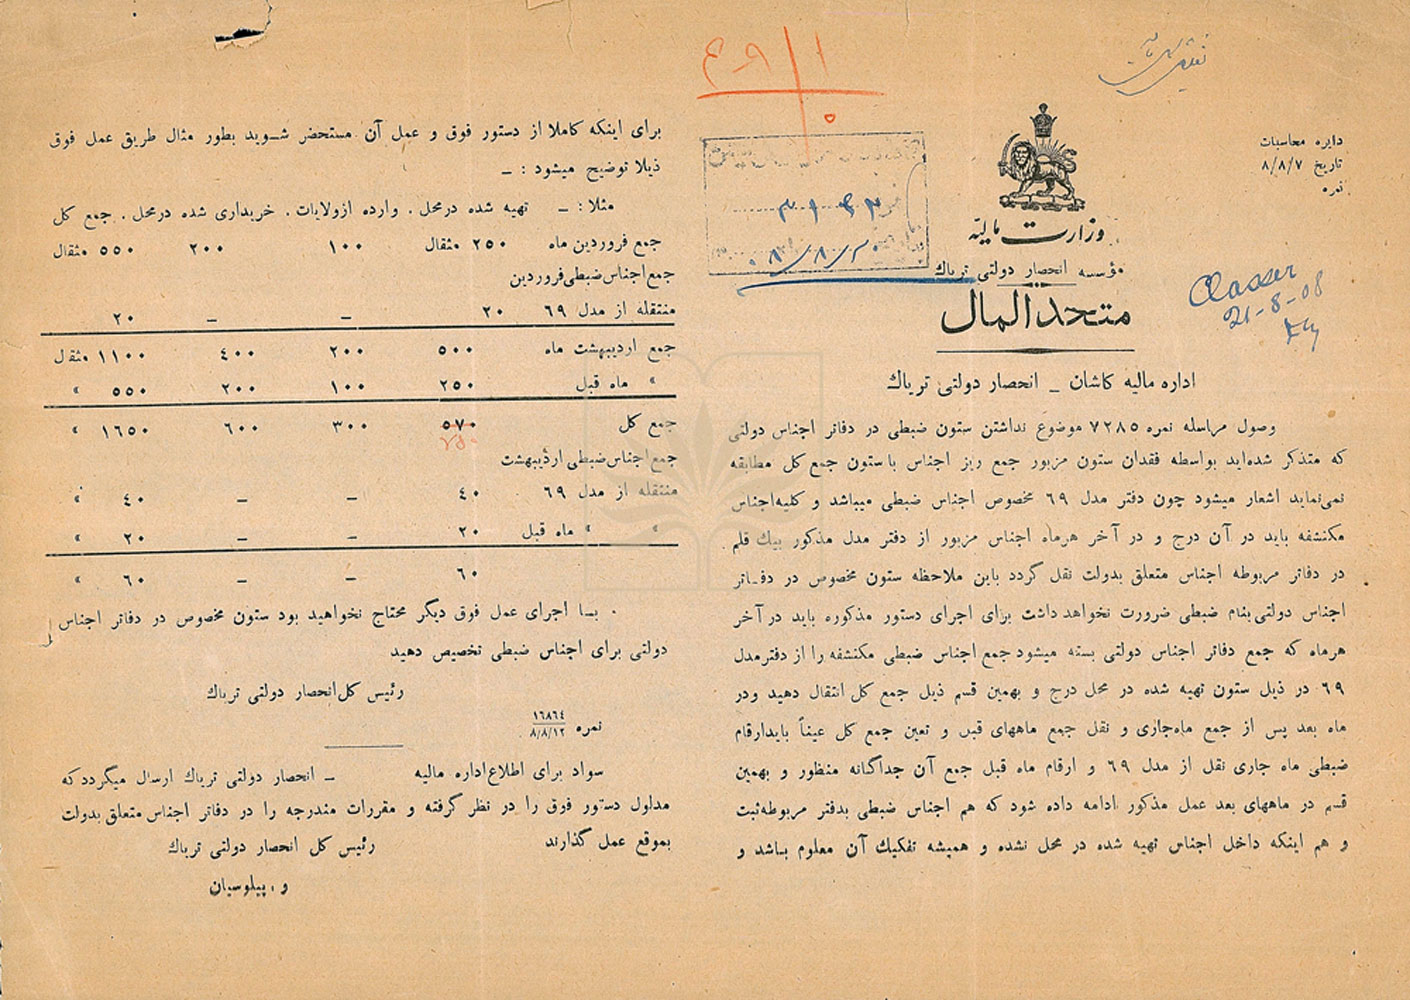 دایره محاسبات
تاریخ ۸/۸/۷
نمره
وزارت مالیه
مؤسسه انحصار دولتی تریاك
متحدالمال
Classer
21-8-08
اداره مالیه کاشان ـ انحصار دولتی تریاك
وصول مراسله نمره ۷۲۸۵ موضوع نداشتن ستون ضبطی در دفاتر اجناس دولتی
که متذکر شده‌اید بواسطه فقدان ستون مزبور جمع ریز اجناس با ستون جمع کل مطابقه
نمی‌نماید اشعار میشود چون دفتر مدل ۶۹ مخصوص اجناس ضبطی میباشد و کلیه‌اجناس
مکتشفه باید در آن درج و در آخر هرماه اجناس مزبور از دفتر مدل مذکور بیك قلم
در دفاتر مربوطه اجناس متعلق بدولت نقل گردد باین ملاحظه ستون مخصوص در دفـاتر
اجناس دولتی بنام ضبطی ضرورت نخواهد داشت برای اجرای دستور مذکوره باید در آخر
هرماه که جمع دفاتر اجناس دولتی بسته میشود جمع اجناس ضبطی مکتشفه را از دفتر مدل
۶۹ در ذیل ستون تهیه شده در محل درج و بهمین قسم ذیل جمع کل انتقال دهید ودر
ماه بعد پس از جمع ماه‌جاری و نقل جمع ماههای قبل و تعین جمع کل عیناً باید ارقام
ضبطی ماه جاری نقل از مدل ۶۹ و ارقام ماه قبل جمع آن جداگانه منظور و بهمین
قسم در ماههای بعد عمل مذکور ادامه داده شود که هم اجناس ضبطی بدفتر مربوطه ثبت
و هم اینکه داخل اجناس تهیه شده در محل نشده و همیشه تفکیك آن معلوم بـاشد و
برای اینکه کاملا از دستور فوق و عمل آن مستحضر شـوید بطور مثال طریق عمل فوق
ذیلا توضیح میشود : ـ
مثلا : ـ تهیه شده در محل . وارده از ولایات . خریداری شده در محل . جمع کل
جمع فروردین ماه ۲۵۰ مثقال ۱۰۰ ۲۰۰ ۵۵۰ مثقال
جمع اجناس ضبطی فروردین
منتقله از مدل ۶۹ ۲۰ ـ ـ ۲۰
جمع اردیبهشت ماه ۵۰۰ ۲۰۰ ۴۰۰ ۱۱۰۰ مثقال
« ماه قبل ۲۵۰ ۱۰۰ ۲۰۰ ۵۵۰ «
جمع کل ۵۷۰ ۳۰۰ ۶۰۰ ۱۶۵۰ «
۷۵۰
جمع اجناس ضبطی اردیبهشت
منتقله از مدل ۶۹ ۴۰ ـ ـ ۴۰ «
« « ماه قبل ۲۰ ـ ـ ۲۰ «
۶۰ ـ ـ ۶۰ «
بـا اجرای عمل فوق دیگر محتاج نخواهید بود ستون مخصوص در دفاتر اجناس
دولتی برای اجناس ضبطی تخصیص دهید
رئیس کل انحصار دولتی تریاك
نمره ۱۶۸۶۴
۸/۸/۱۲
سواد برای اطلاع اداره مالیه ـ انحصار دولتی تریاك ارسال میگردد که
مدلول دستور فوق را در نظر گرفته و مقررات مندرجه را در دفاتر اجناس متعلق بدولت
بموقع عمل گذارند
رئیس کل انحصار دولتی تریاك
و . پیلوسیان